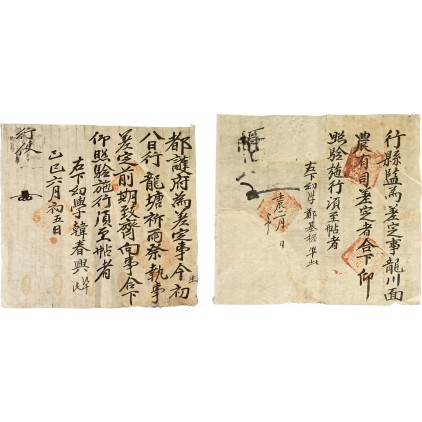 都護府爲差定事今初
八日行龍塘祈雨祭執事
差定前期致齋向事合下
仰照驗施行須至帖者
左下幼學韓春興
己巳六月初五日
行使
行縣監爲差定事龍川面
農有司差定者合下仰
照驗施行須至帖者
左下幼學鄭基準此
二月 日